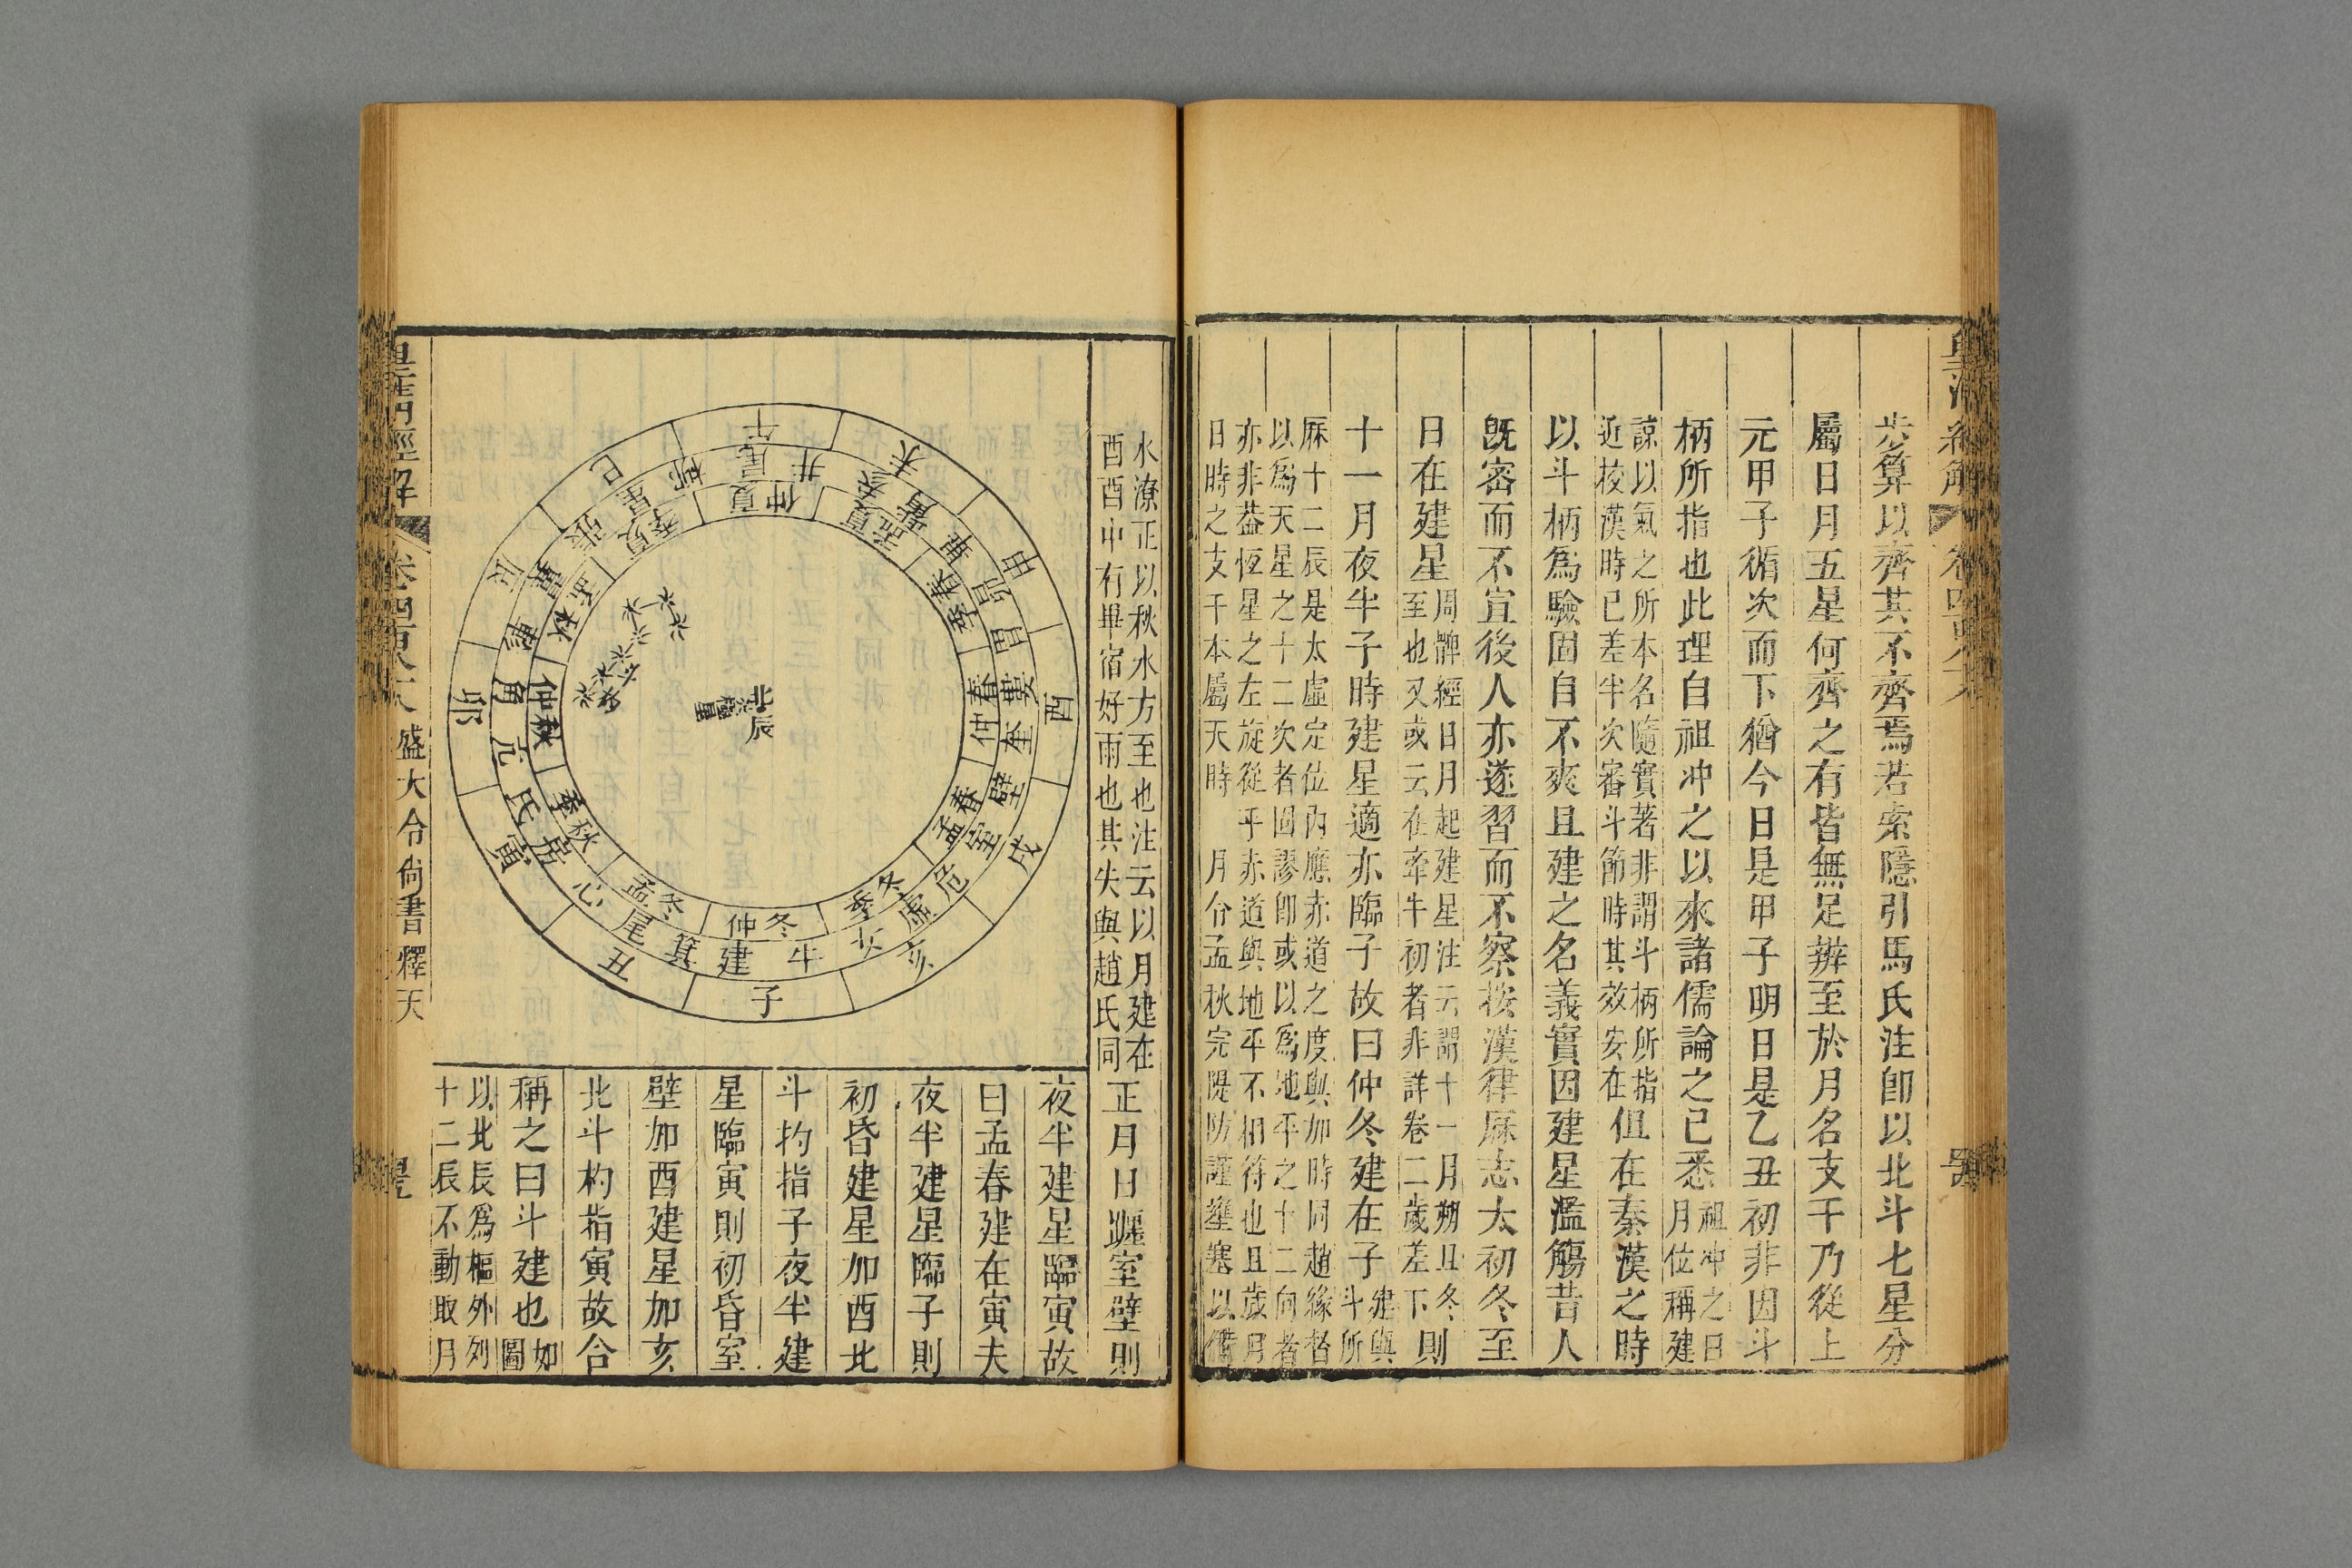 步算以齊其不齊焉若索隱引馬氏注卽以北斗七星分
屬日月五星何齊之有皆無足辨至於月名支干乃從上
元甲子循次而下猶今日是甲子明日是乙丑初非因斗
柄所指也此理自祖冲之以來諸儒論之已悉祖冲之曰
月位稱建
諒以氣之所本名隨實著非謂斗柄所指
近校漢時已差半次審斗節時其效安在但在秦漢之時
以斗柄爲驗固自不爽且建之名義實因建星濫觴昔人
旣密而不宣後人亦遂習而不察按漢律厤志太初冬至
日在建星周髀經日月起建星注云謂十一月朔旦冬
至也又或云在牽牛初者非詳卷二歲差下則
十一月夜半子時建星適亦臨子故曰仲冬建在子建與
斗所
厤十二辰是太虛定位內應赤道之度與加時同趙緣督
以爲天星之十二次者固謬卽或以爲地平之十二向者
亦非葢恆星之左旋從乎赤道與地平不相符也且歲月
日時之支干本屬天時
月令孟秋完隄防謹壅塞以備
水潦正以秋水方至也注云以月建在
酉酉中有畢宿好雨也其失與趙氏同
正月日躔室壁則
夜半建星臨寅故
曰孟春建在寅夫
夜半建星臨子則
初昏建星加酉北
斗杓指子夜半建
星臨寅則初昏室
壁加酉建星加亥
北斗杓指寅故合
稱之曰斗建也如
圖
以北辰爲樞外列
十二辰不動取月
子
丑
寅
卯
辰
巳
午
未
申
酉
戌
亥
仲冬
孟冬
季秋
仲秋
孟秋
季夏
仲夏
孟夏
季春
仲春
孟春
季冬
牛
建
箕
尾
心
房
氐
亢
角
軫
翼
張
星
柳
井
畢
昴
胃
婁
奎
壁
室
危
虛
女
北辰
盛大令尚書釋天